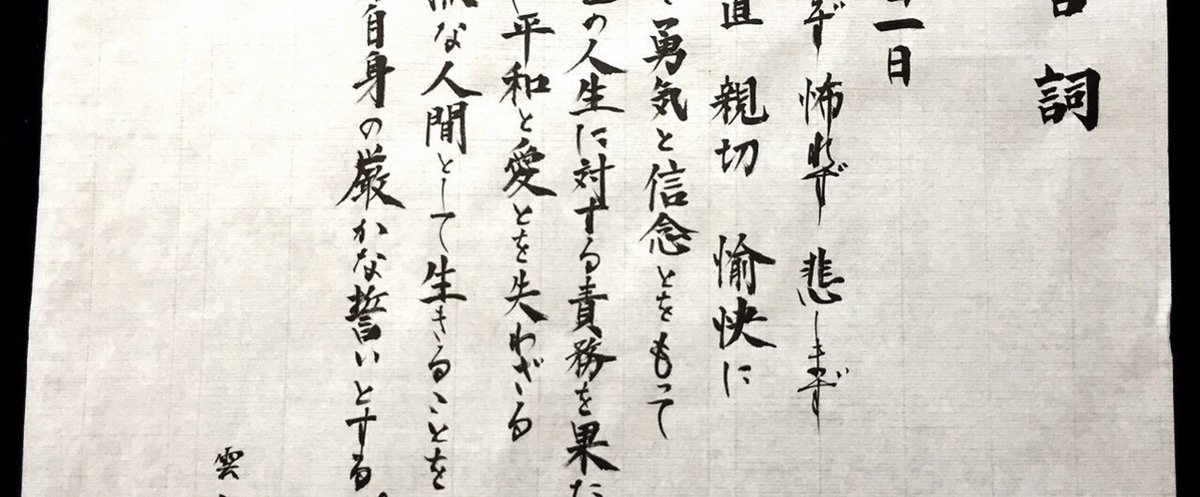 詞
一日
ず 怖れず 悲しまず
直 親切 愉快に
勇気と信念とをもって
の人生に対する責務を果た
平和と愛とを失わざる
な人間として生きることを
自身の厳かな誓いとする
雲